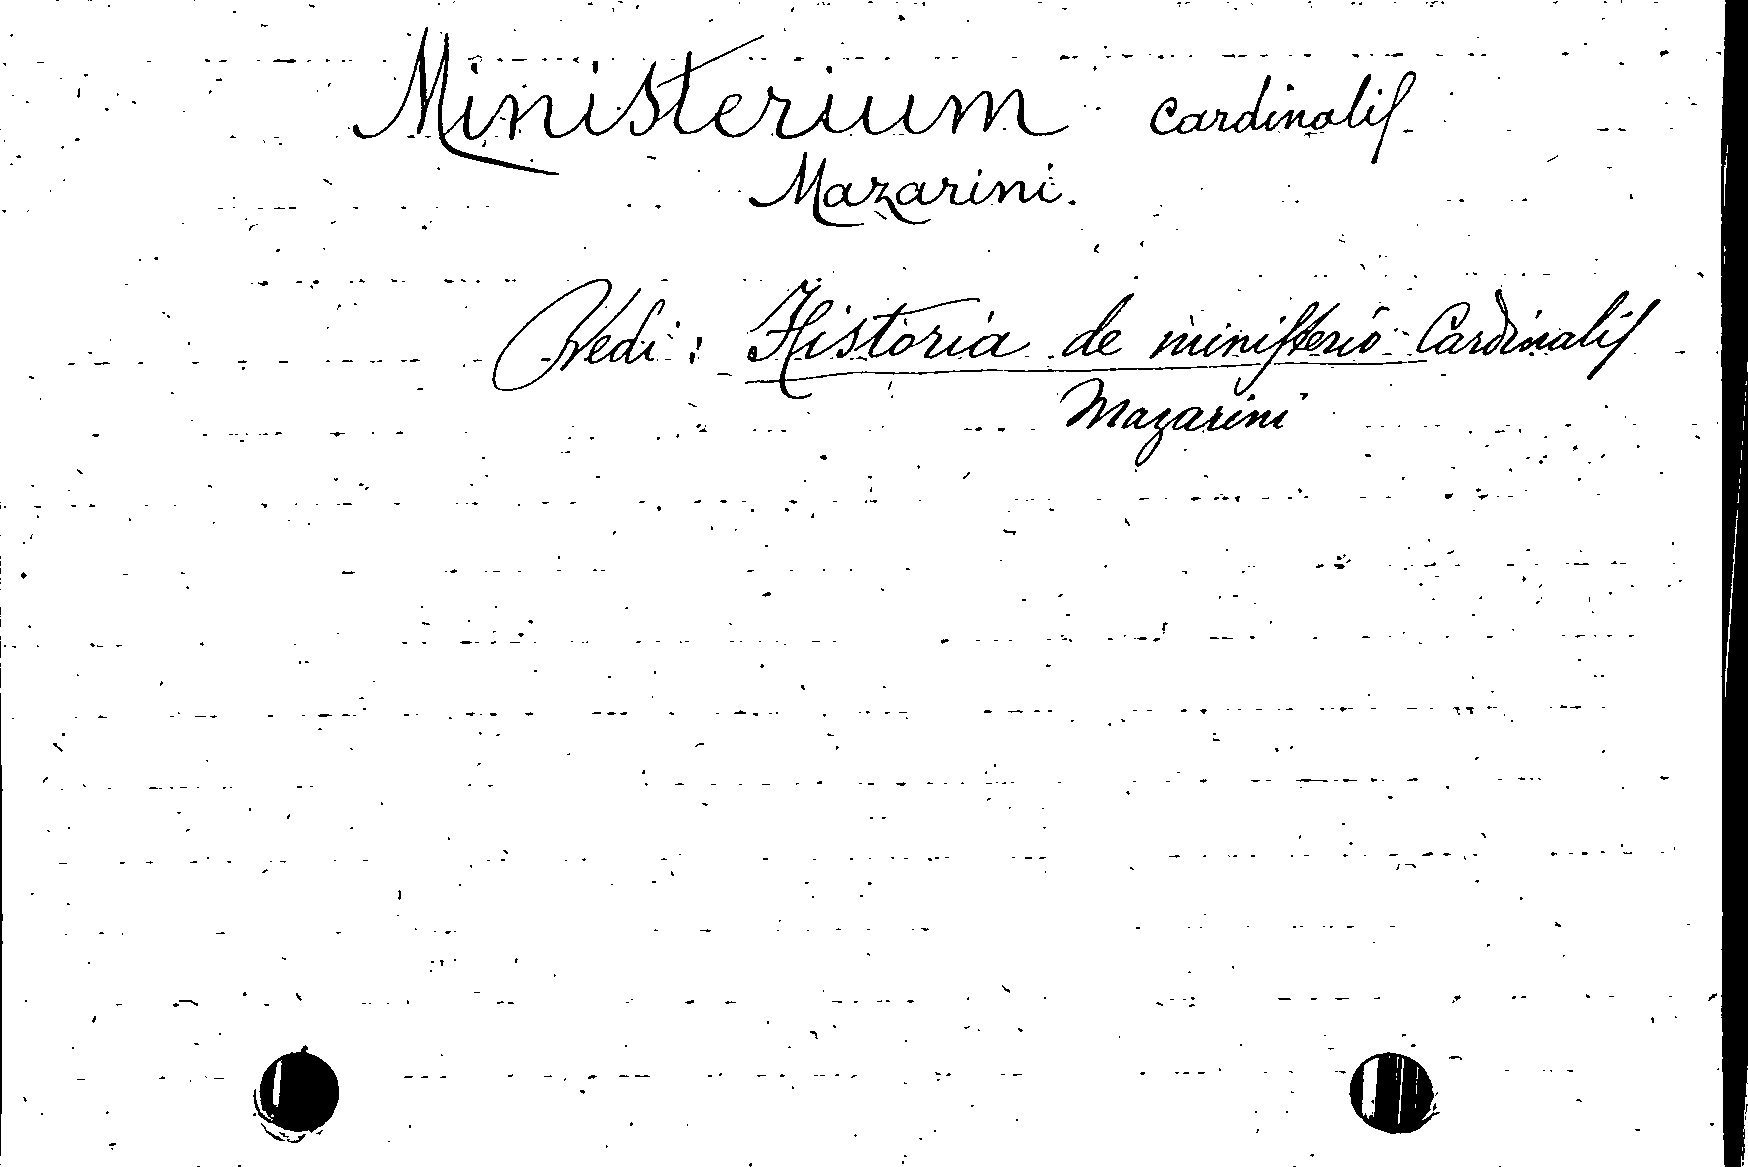 Ministerium cardinaliſ
Mazarini.
Vedi: Historia de miniſterio Cardinaliſ
Mazarini